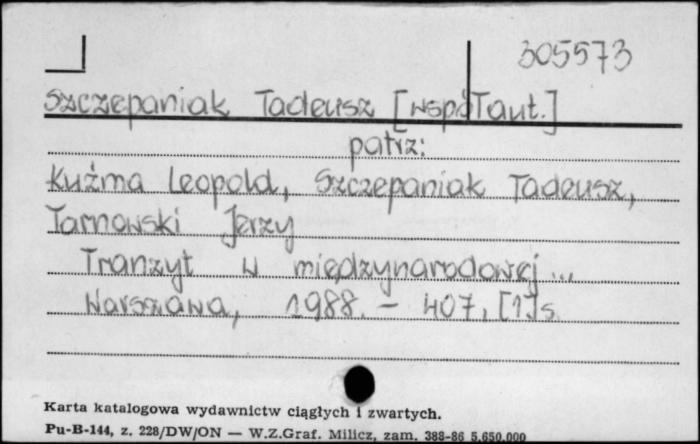 305573
Szczepaniak Tadeusz [współaut.]
patrz:
Kuźma Leopold, Szczepaniak Tadeusz,
Tarnowski Jerzy
Tranzyt w międzynarodowej...
Warszawa, 1988. - 407, [1]s.
Karta katalogowa wydawnictw ciągłych i zwartych.
Pu-B-144, z. 228/DW/ON — W.Z.Graf. Milicz, zam. 388-86 5.650.000